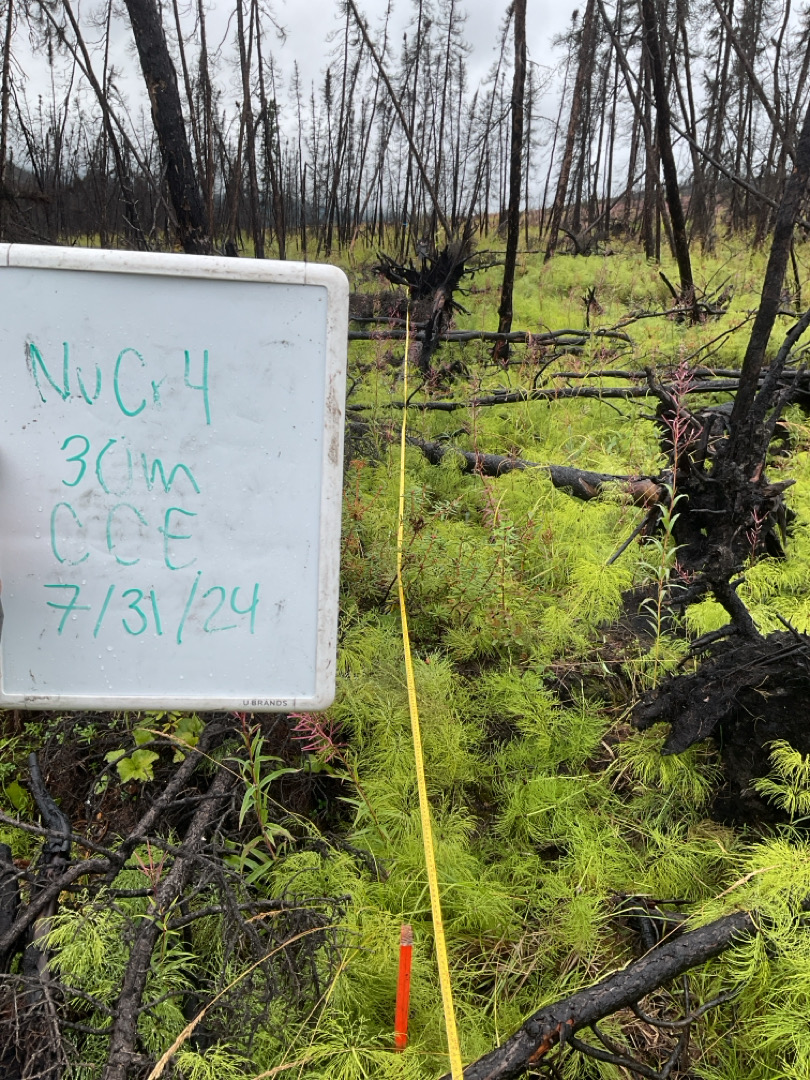 NuCr4
30m
CCE
7/31/24
U BRANDS